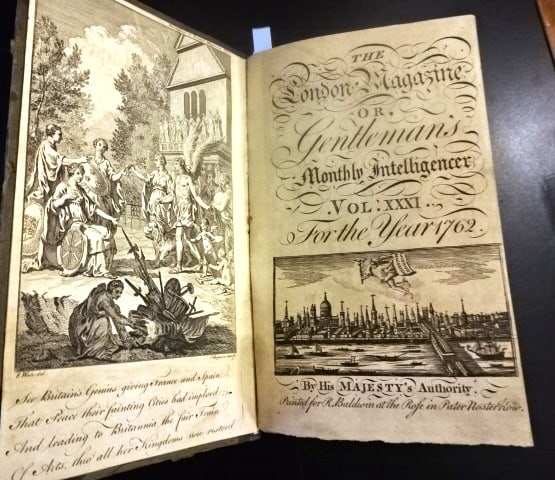 S. Wale del.
See Britain's Genius giving France and Spain
That Peace their fainting Cities had implor'd
And leading to Britannia the fair Train
Of Arts, thro' all her Kingdoms now restor'd
THE
London Magazine
OR,
Gentleman's
Monthly Intelligencer
VOL: XXXI.
For the Year 1762.
By His MAJESTY's Authority.
Printed for R. Baldwin at the Rose in Pater Noster Row.